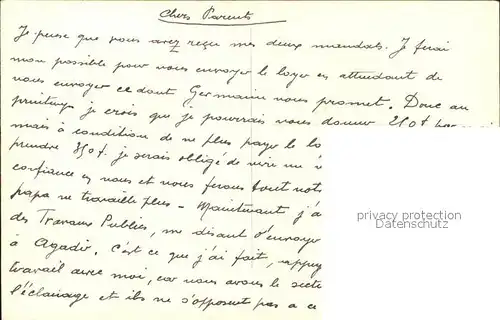 Chers Parents
Je pense que vous avez reçu mes deux mandats. Je ferai
mon possible pour vous envoyer le loyer en attendant de
vous envoyer ce dont Germaine vous promet. Donc au
printemps je crois que je pourrais vous donner 250f
mais à condition de ne plus payer le lo
prendre 350f. je serais obligé de vivre
confiance en nous et nous ferons tout
papa ne travaille plus - Maintenant j'a
des Travaux Publics, me disant d'envoyer
à Agadir. C'est ce que j'ai fait,
travail avec moi, car nous avons le
l'éclairage et ils ne s'opposent pas a ce
privacy protection
www.akpool.com